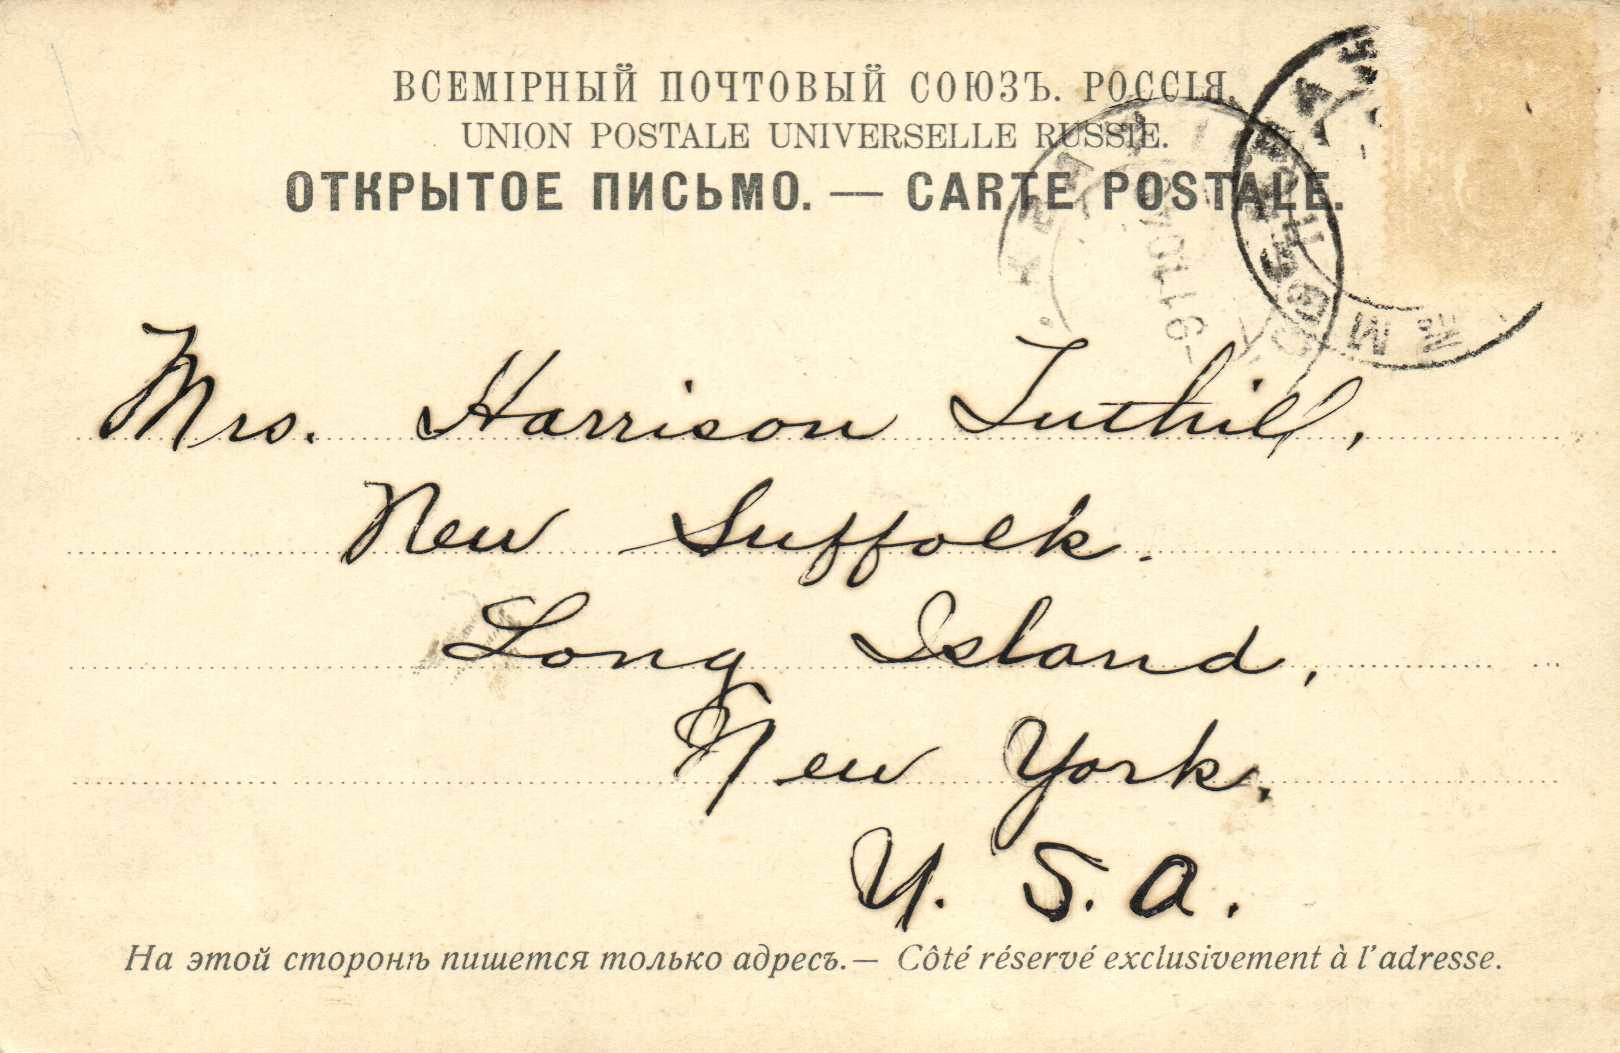 ВСЕМІРНЫЙ ПОЧТОВЫЙ СОЮЗЪ. РОССІЯ.
UNION POSTALE UNIVERSELLE RUSSIE.
ОТКРЫТОЕ ПИСЬМО. — CARTE POSTALE.
Mrs. Harrison Tuthill,
New Suffolk.
Long Island,
New York.
U. S. A.
На этой сторонѣ пишется только адресъ. — Côté réservé exclusivement à l'adresse.